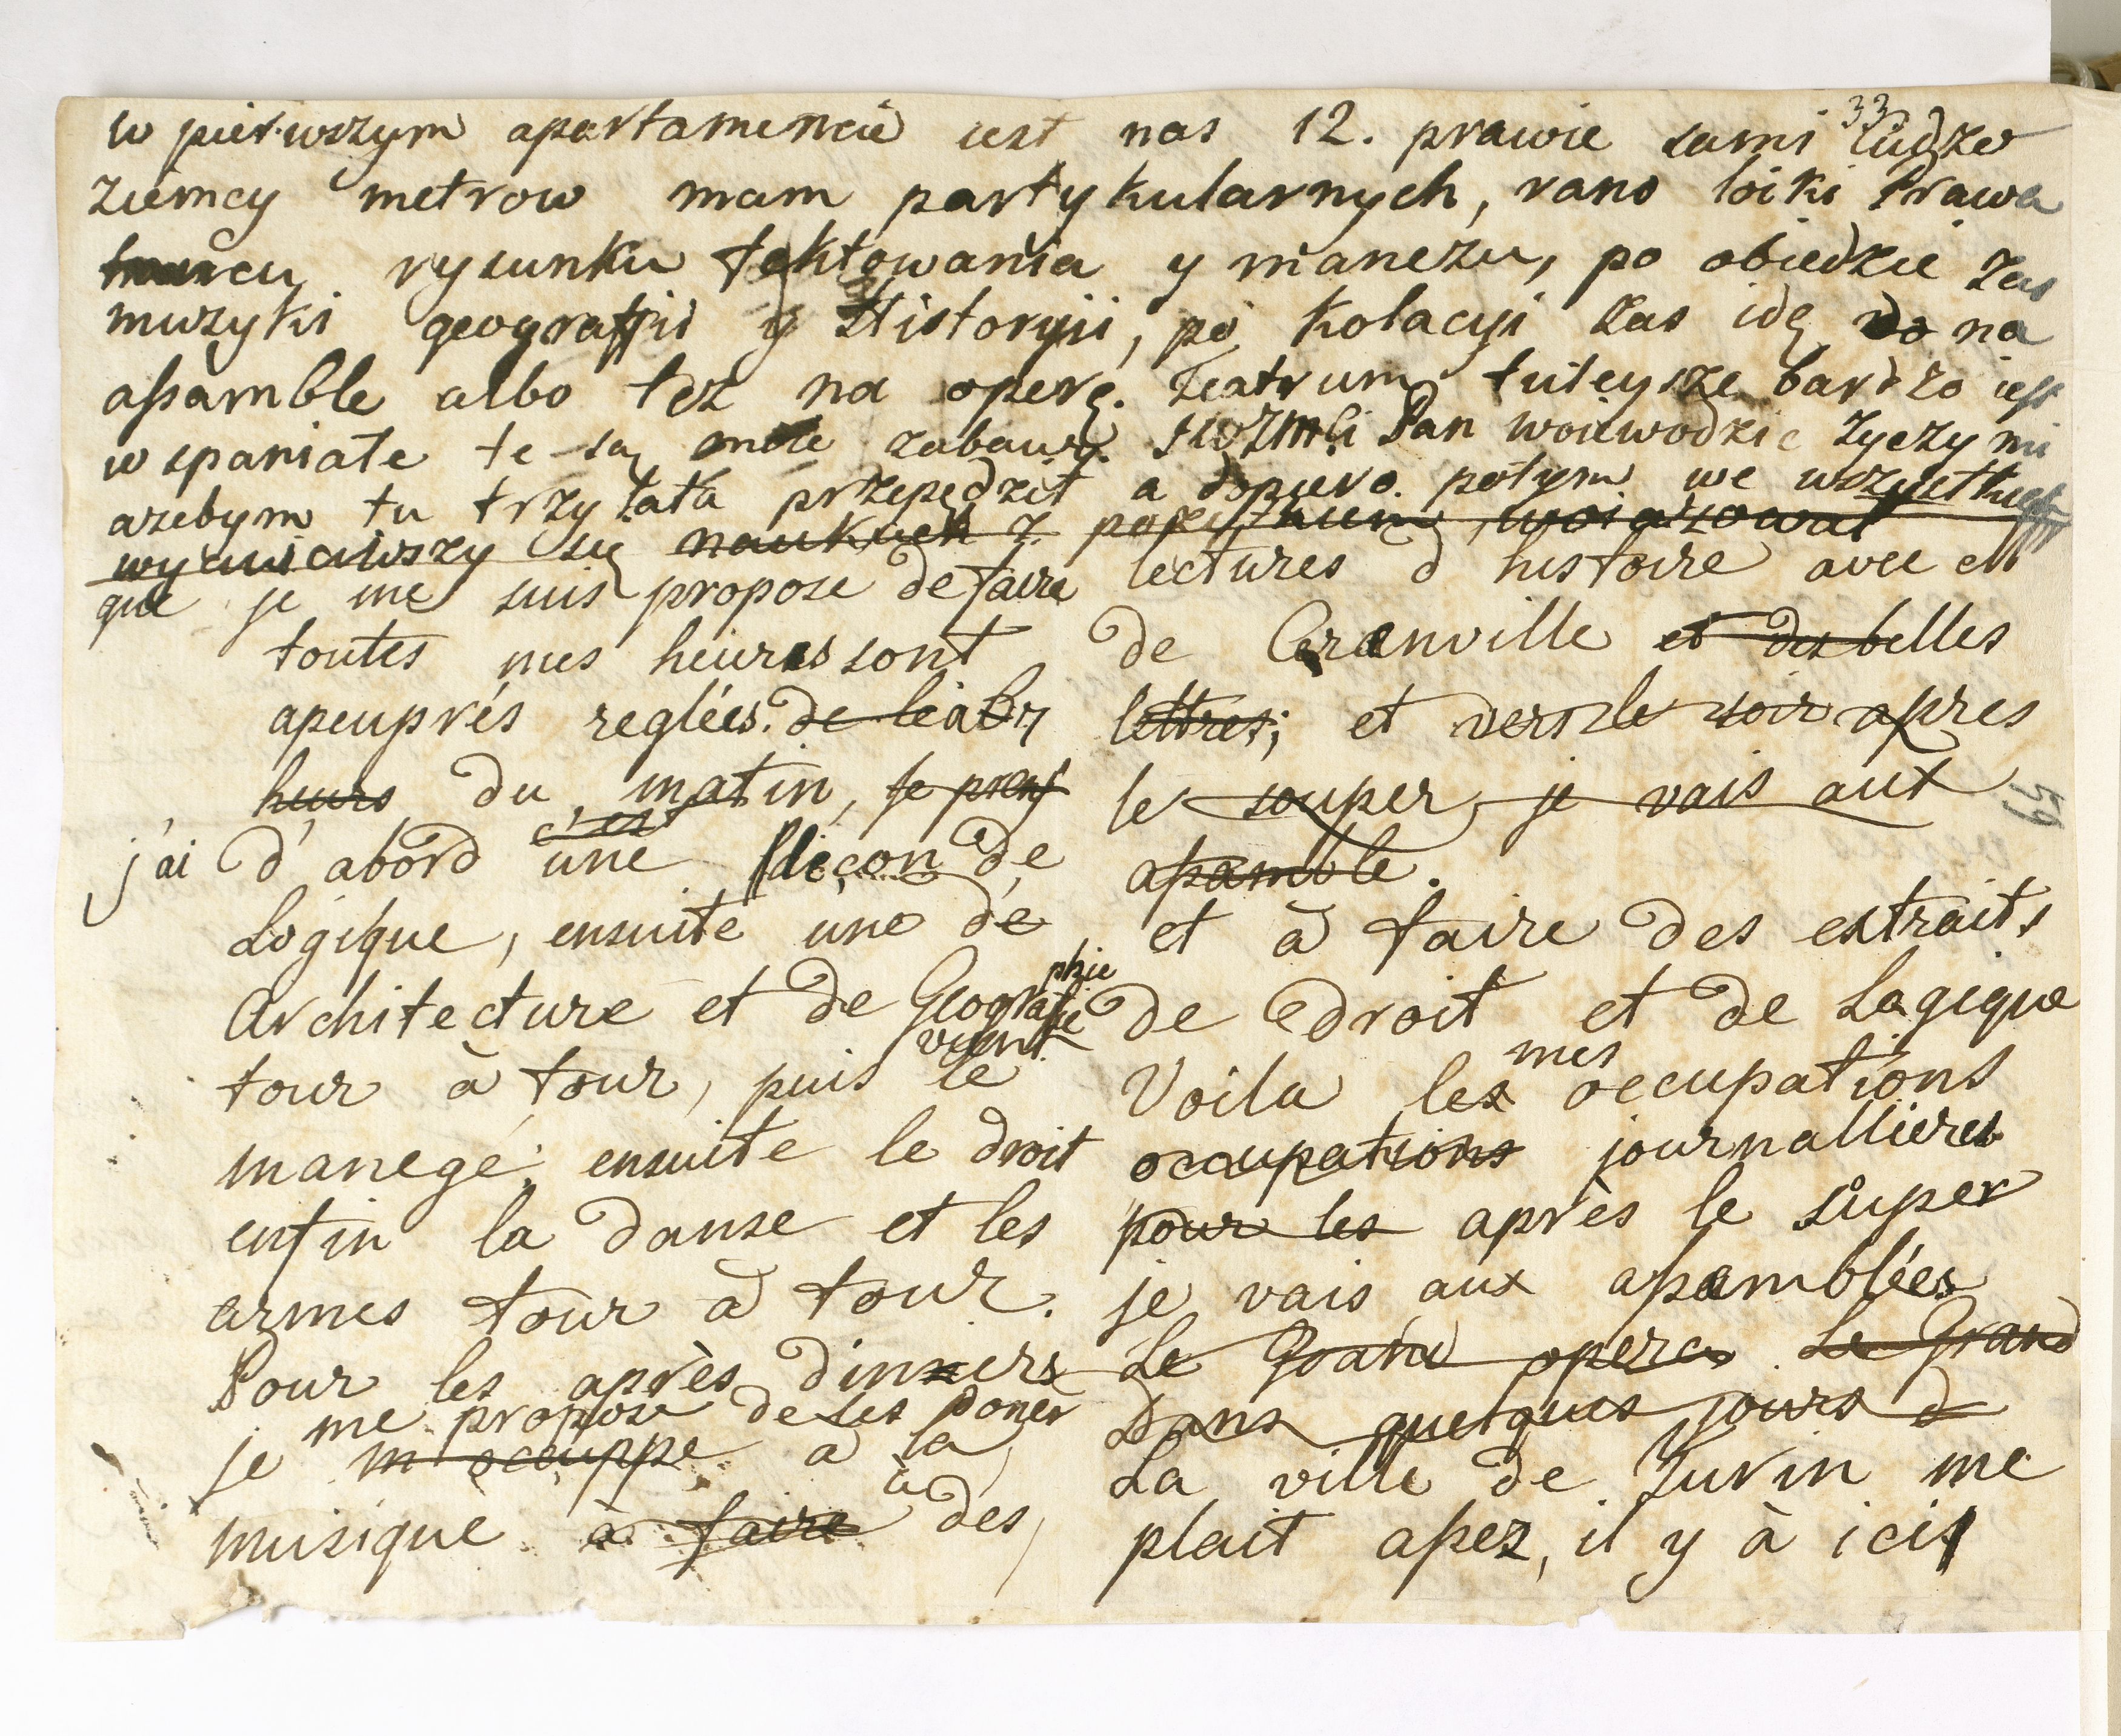 33
w pierwszym apartamencie iest nas 12. prawie sami cudzo
ziemcy metrow mam partykularnych, rano loiki Prawa
tancu rysunku fektowania y manezu, po obiedzie zas
muzyki geografii y Historyii, po kolacyi zas idę do na
aſsamble albo tez na operę. Teatrum tuteysze bardzo iest
wspaniałe te są moie zabawy. JWJMCi Pan woiewodzic zyczy mi
azebym tu trzy lata przepędził a dopiero potym we wszystkich
wycwiczywszy się naukach z pozytkiem woiazował
que je me suis propose de faire
toutes mes heures sont
apeuprés reglées. de léab 7
heurs du matin, je prens
j'ai d'abord c'est une leçon de
Logique, ensuite une de
Architecture et de Geografie phie
tour à tour, puis vient le
manege; ensuite le droit
enfin la danse et les
armes tour à tour.
Pour les après dinners
je me propose de les doner
m'occuppe a la
musique à faire à des
lectures d'histoire avec M
de Granville et des belles
lettres; et vers le soir apres
le souper, je vais aux
aſsamble.
59
et à faire des extraits
de droit et de Logique
Voila les mes occupations
occupations journallieres
pour les après le super
je vais aux aſsamblées
Le Grand opera Le Grand
Dans quelques jours d
La ville de Turin me
plait aſsez, il y à ici